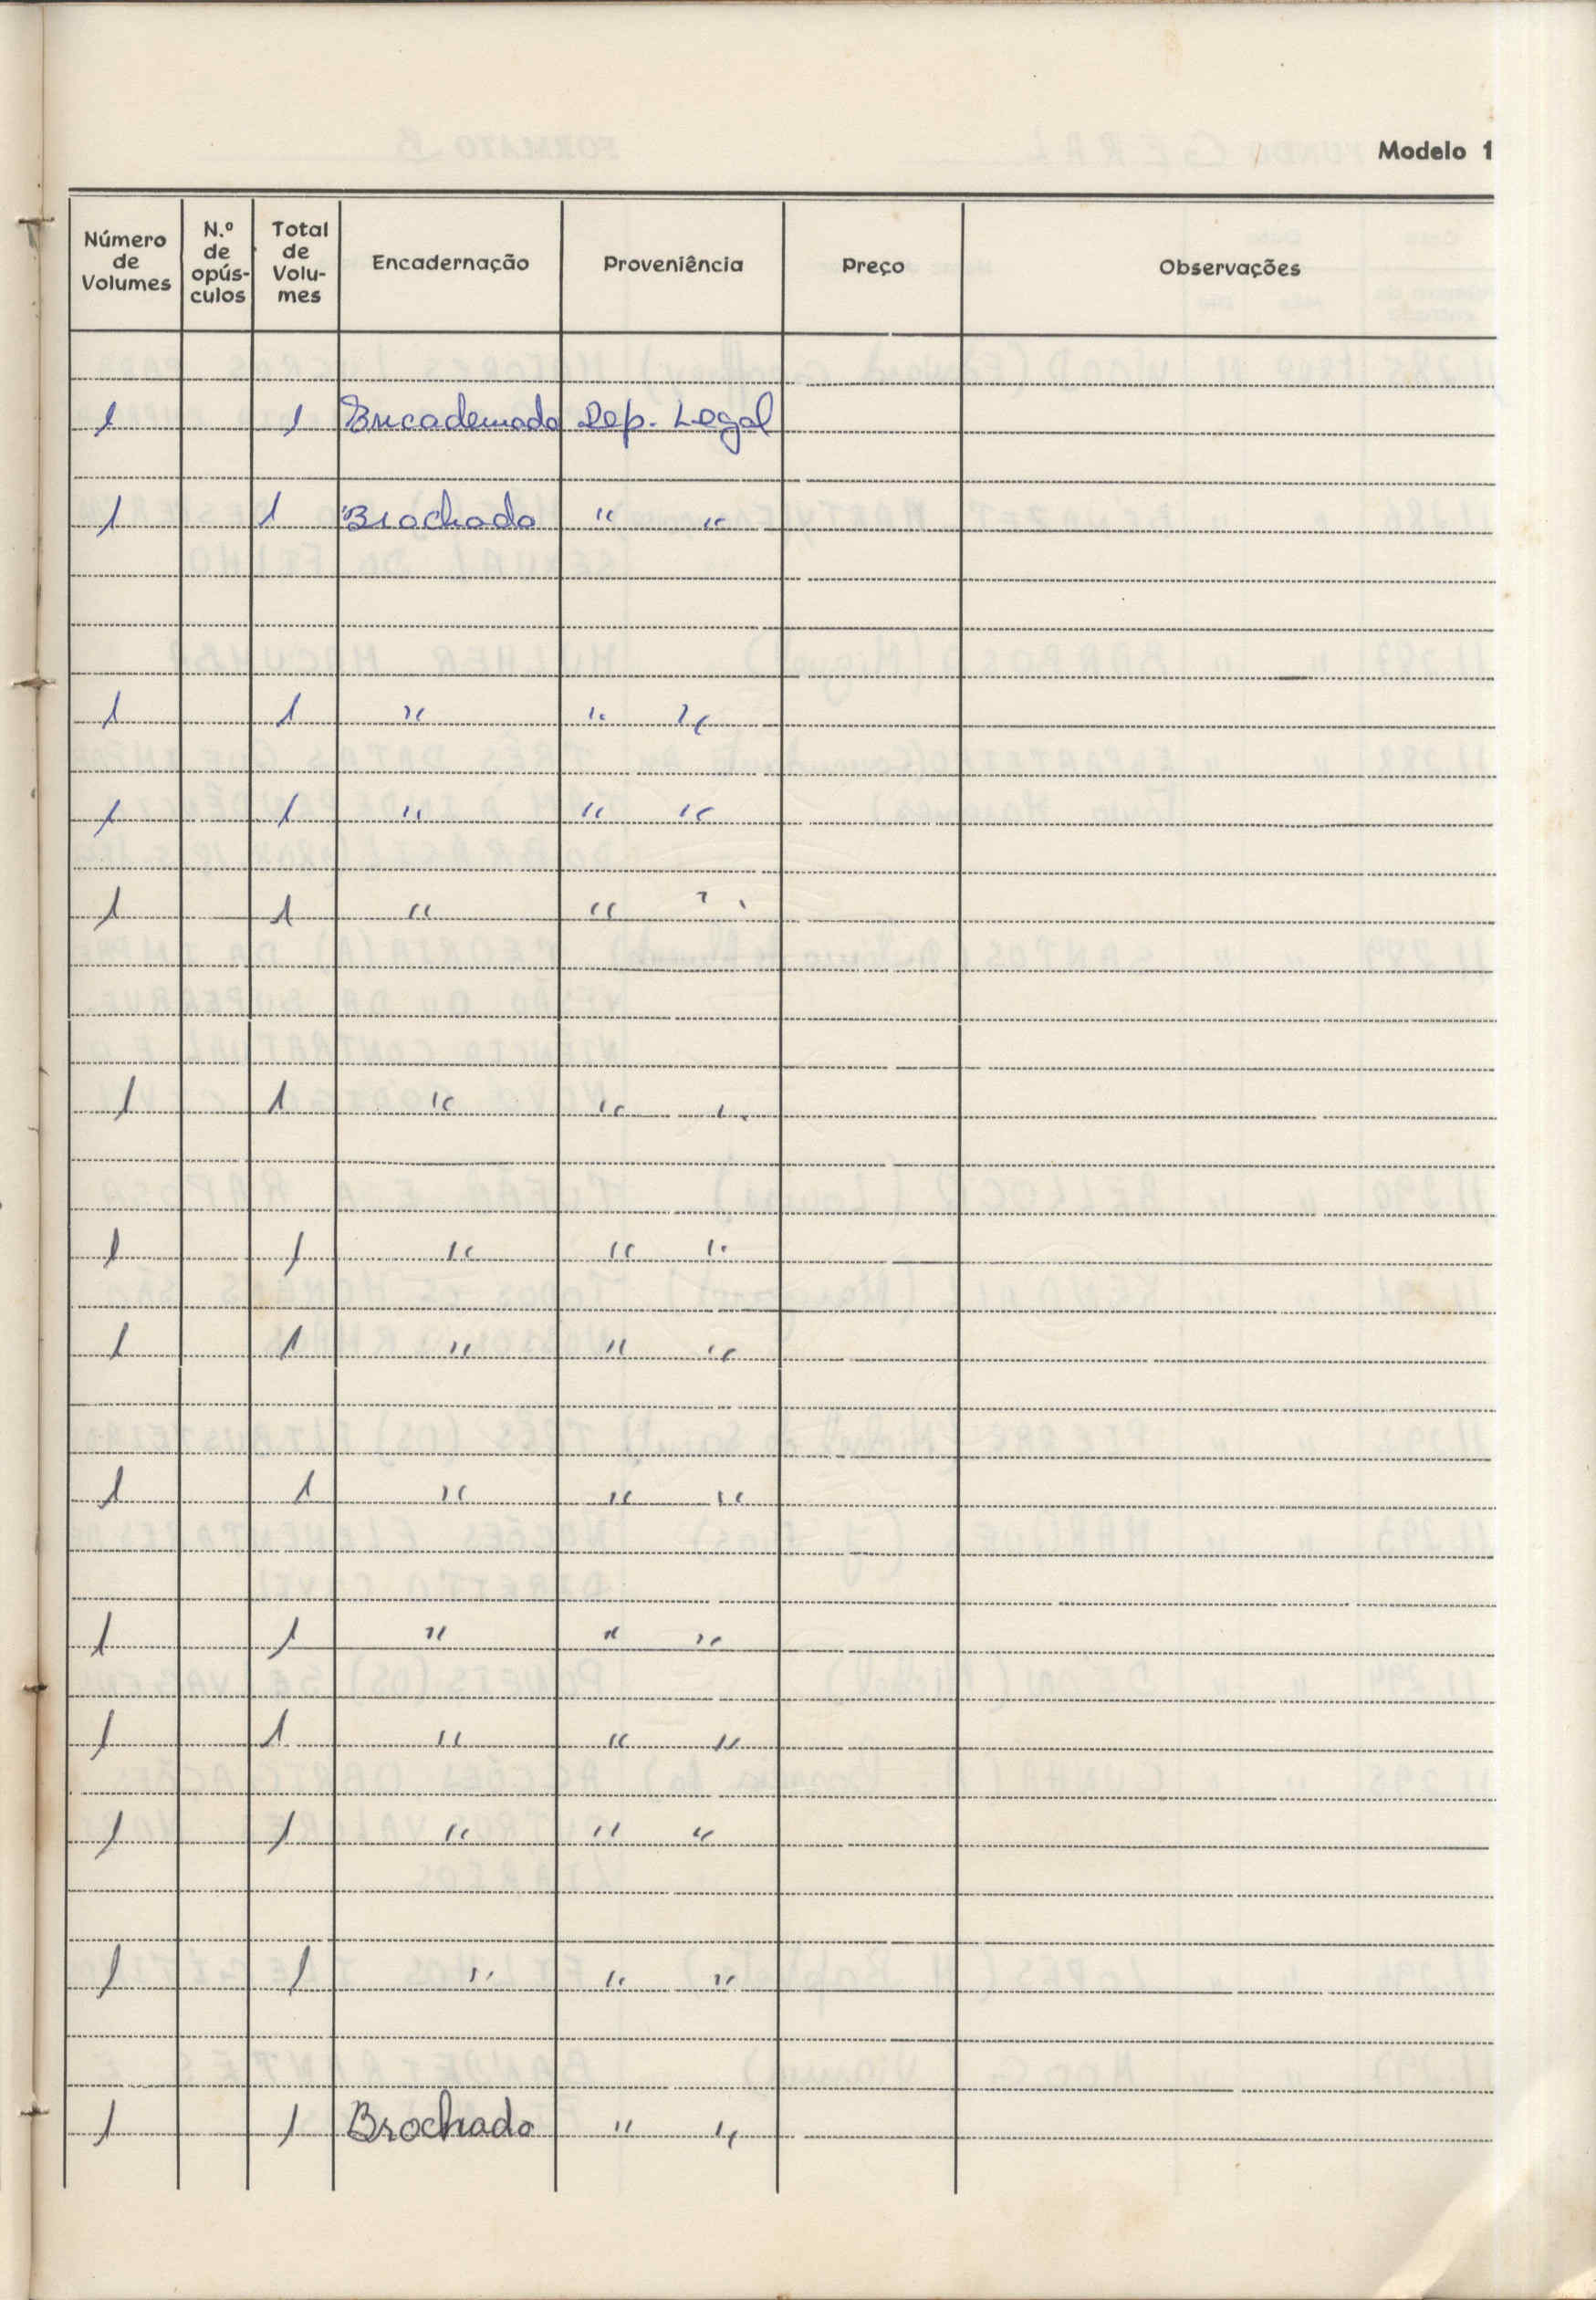 Modelo 1
Número de Volumes N.º de opús-culos Total de Volu-mes Encadernação Proveniência Preço Observações
1 1 Encadernado Dep. Legal
1 1 Brochado " "
1 1 " " "
1 1 " " "
1 1 " " "
1 1 " " "
1 1 " " "
1 1 " " "
1 1 " " "
1 1 " " "
1 1 " " "
1 1 " " "
1 1 " " "
1 1 Brochado " "